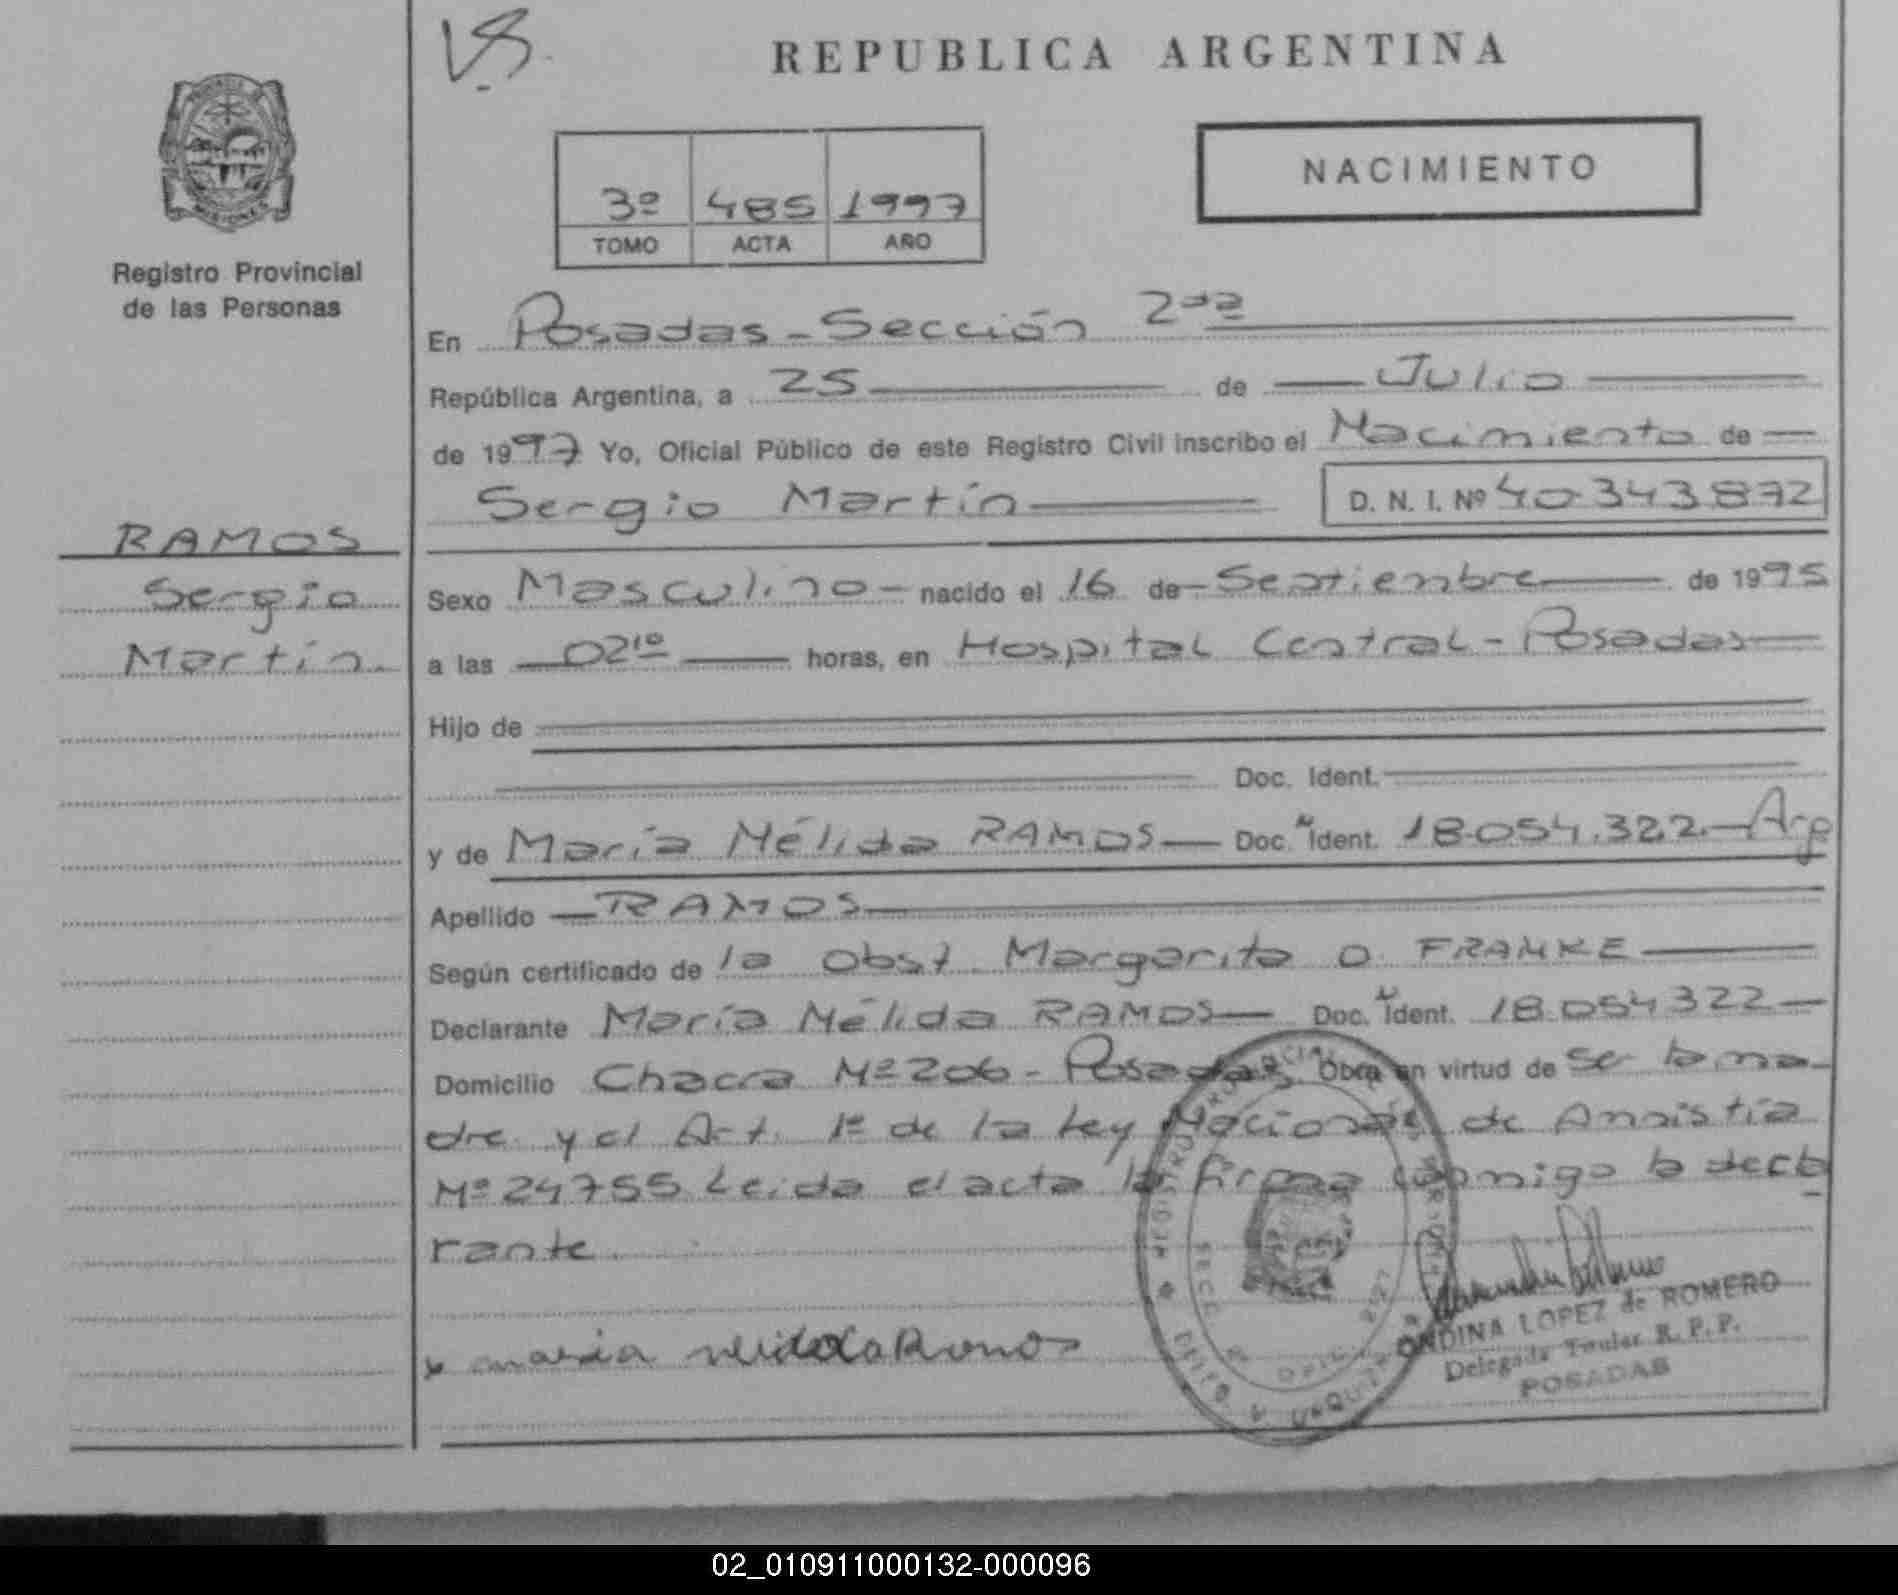 REPUBLICA ARGENTINA
NACIMIENTO
3º 485 1997
TOMO ACTA AÑO
Registro Provincial
de las Personas
En Posadas - Sección 2da
República Argentina, a 25 de Julio
de 1997 Yo, Oficial Público de este Registro Civil inscribo el Nacimiento de
Sergio Martín D. N. I. Nº 40.343.872
RAMOS
Sergio
Martín.
Sexo Masculino - nacido el 16 de Septiembre de 1995
a las 02 10 horas, en Hospital Central - Posadas
Hijo de
Doc. Ident.
y de María Nélida RAMOS Doc. Ident. 18.054.322 - Arg
Apellido RAMOS
Según certificado de la Obst. Margarita O. FRANKE
Declarante María Nélida RAMOS Doc. Ident. 18.054322
Domicilio Chacra Nº 206 - Posadas Obra en virtud de ser la ma-
dre y el Art. 1º de la Ley Nacional de Amnistía
Nº 24755 Leida el acta la firma conmigo la decla
rante.
x maria nelida Ramos
ONDINA LOPEZ de ROMERO
Delegada Titular R. P. P.
POSADAS
02_010911000132-000096